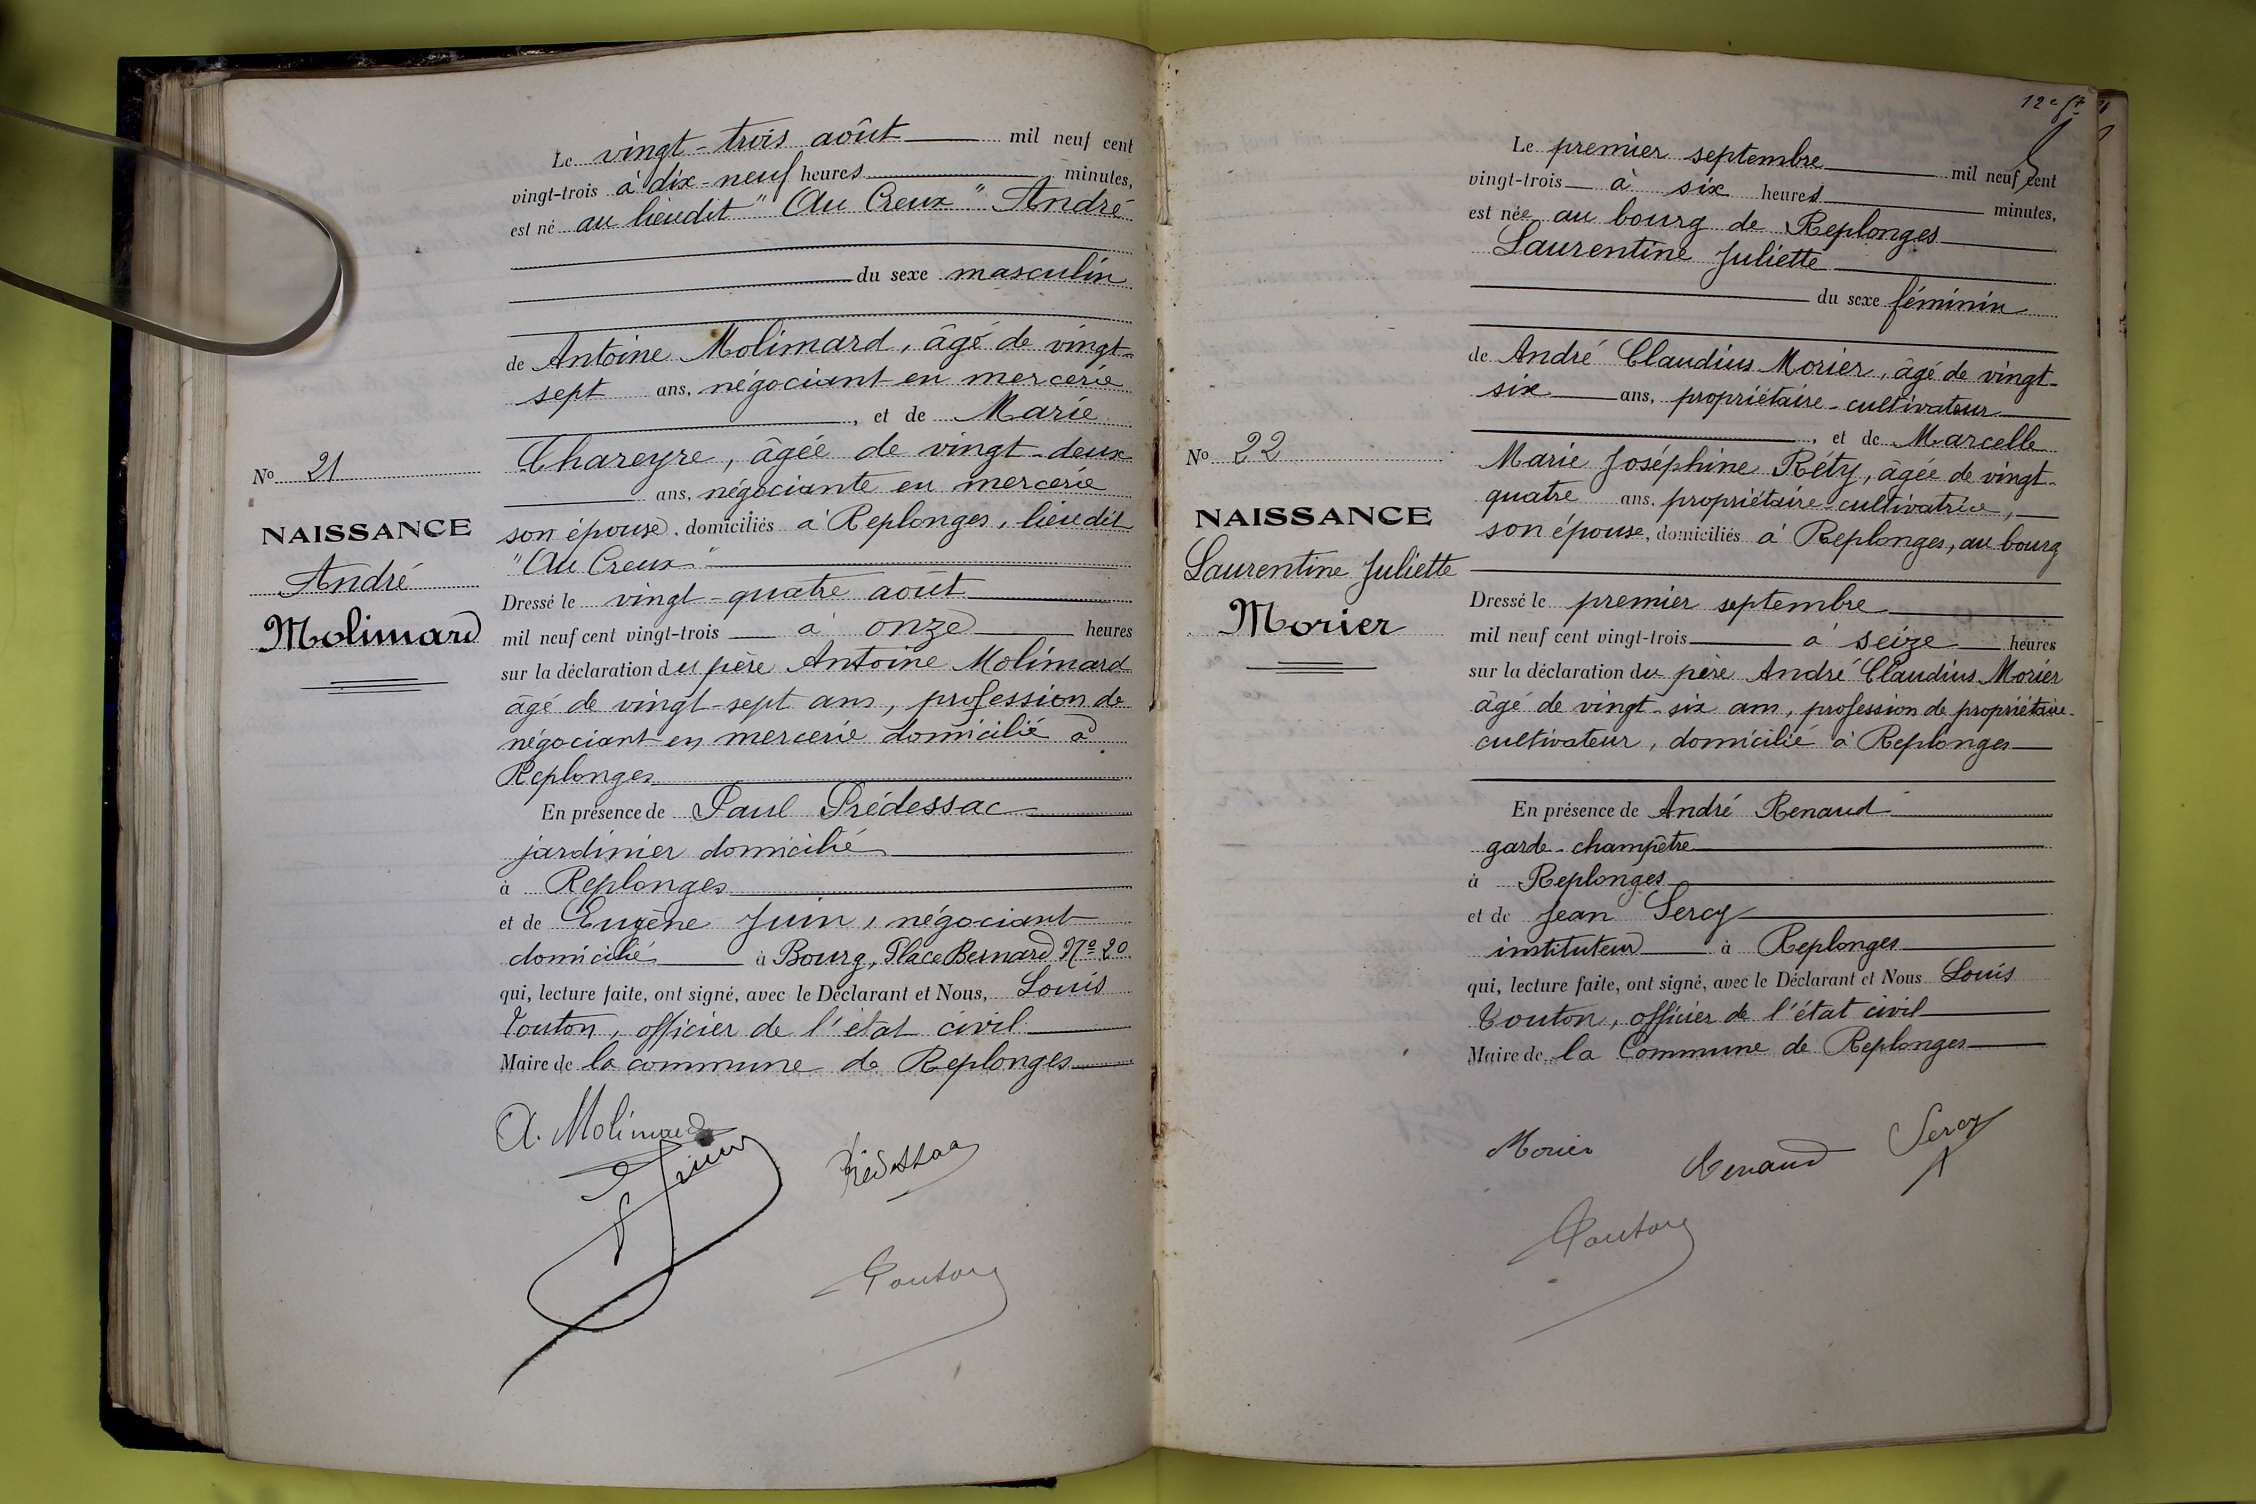 Le vingt-trois août mil neuf cent
vingt-trois à dix-neuf heures minutes,
est né au lieudit "Au Creux" André
du sexe masculin
de Antoine Molimard, âgé de vingt-
sept ans, négociant en mercerie
, et de Marie
Chareyre, âgée de vingt-deux
ans, négociante en mercerie
son épouse, domiciliés à Replonges, lieudit
"Au Creux"
Dressé le vingt-quatre août
mil neuf cent vingt-trois à onze heures
sur la déclaration du père Antoine Molimard
âgé de vingt-sept ans, profession de
négociant en mercerie domicilié à
Replonges
En présence de Paul Prédessac
jardinier domicilié
à Replonges
et de Eugène Juin, négociant
domicilié à Bourg, Place Bernard No 20
qui, lecture faite, ont signé, avec le Déclarant et Nous, Louis
Touton, officier de l'état civil
Maire de la commune de Replonges
No 21
NAISSANCE
André
Molimard
A. Molimard
E Juin
Prédessac
Touton
12e ft
Le premier septembre mil neuf cent
vingt-trois à six heures minutes,
est née au bourg de Replonges
Laurentine Juliette
du sexe féminin
de André Claudius Morier, âgé de vingt-
six ans, propriétaire-cultivateur
, et de Marcelle
Marie Joséphine Réty, âgée de vingt-
quatre ans, propriétaire-cultivatrice,
son épouse, domiciliés à Replonges, au bourg
Dressé le premier septembre
mil neuf cent vingt-trois à seize heures
sur la déclaration du père André Claudius Morier
âgé de vingt-six ans, profession de propriétaire-
cultivateur, domicilié à Replonges
En présence de André Renaud
garde-champêtre
à Replonges
et de Jean Sercy
instituteur à Replonges
qui, lecture faite, ont signé, avec le Déclarant et Nous Louis
Touton, officier de l'état civil
Maire de la Commune de Replonges
No 22
NAISSANCE
Laurentine Juliette
Morier
Morier
Renaud
Sercy
Touton